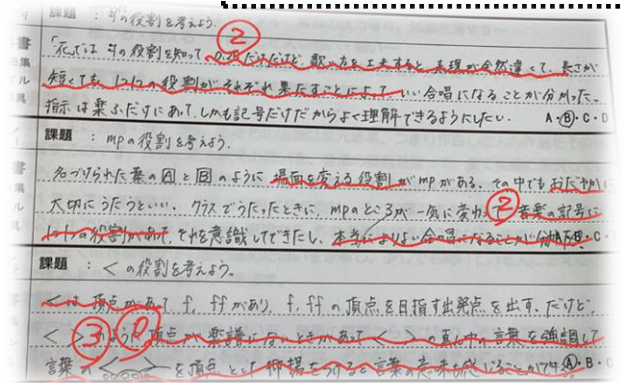 課題 : 升の役割を考えよう.
「花」では 升の役割を知って、 だけだけど、歌い方を工夫すると表現が全然違くて、長さが
短くても、1つ1つの役割がそれぞれ果たすことによっていい合唱になることが分かった。
指示は楽ふだけにあって、しかも記号だけだからよく理解できるようにしたい。 A・B・C・D
課題 : mpの役割を考えよう.
名づけられた葉の と のように 場面を変える役割がmpがある。その中でもおだやかに
大切にうたうといい。クラスでうたったときに、mpのところが一気に変わ 音楽の記号に
1つ1つの役割があって、それを意識してできたし、本当によりよい合唱になることが分 B・C・
課題 : < の役割を考えよう.
<は 頂点があって、f, ffがあり、f, ffの頂点を目指す出発点を出す。だけど、
< > のように頂点が楽譜にないときがあって < > の真ん中の言葉を強調して
言葉の < > を頂点とした 抑揚をつけると言葉の意味も感じることが A・B・C
②
②
③